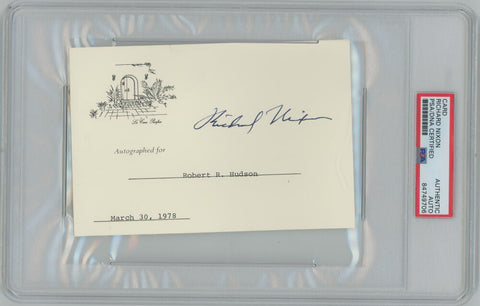 La Casa Pacifica
Richard Nixon
Autographed for
Robert R. Hudson
March 30, 1978
CARD
RICHARD NIXON
PSA/DNA CERTIFIED
AUTHENTIC
AUTO
84749706
PSA